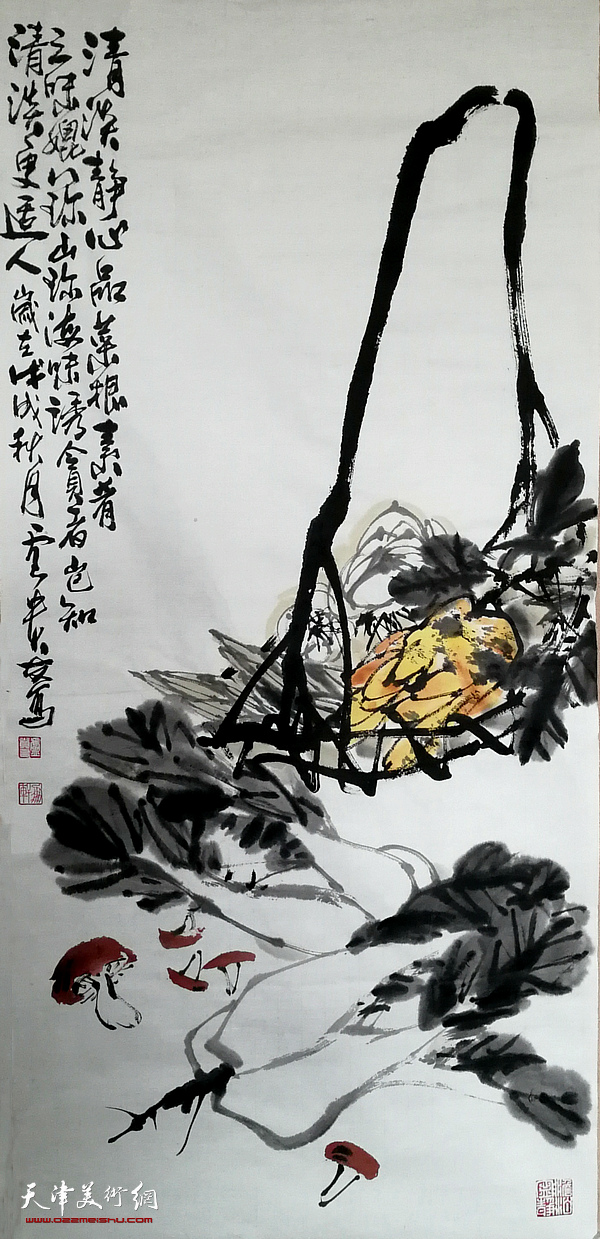 清淡静心品菜根素肴
之味媲八珍山珍海味诱贪者岂知
清淡更适人 岁在戊戌秋月云贵写
天津美術網
www.022meishu.com